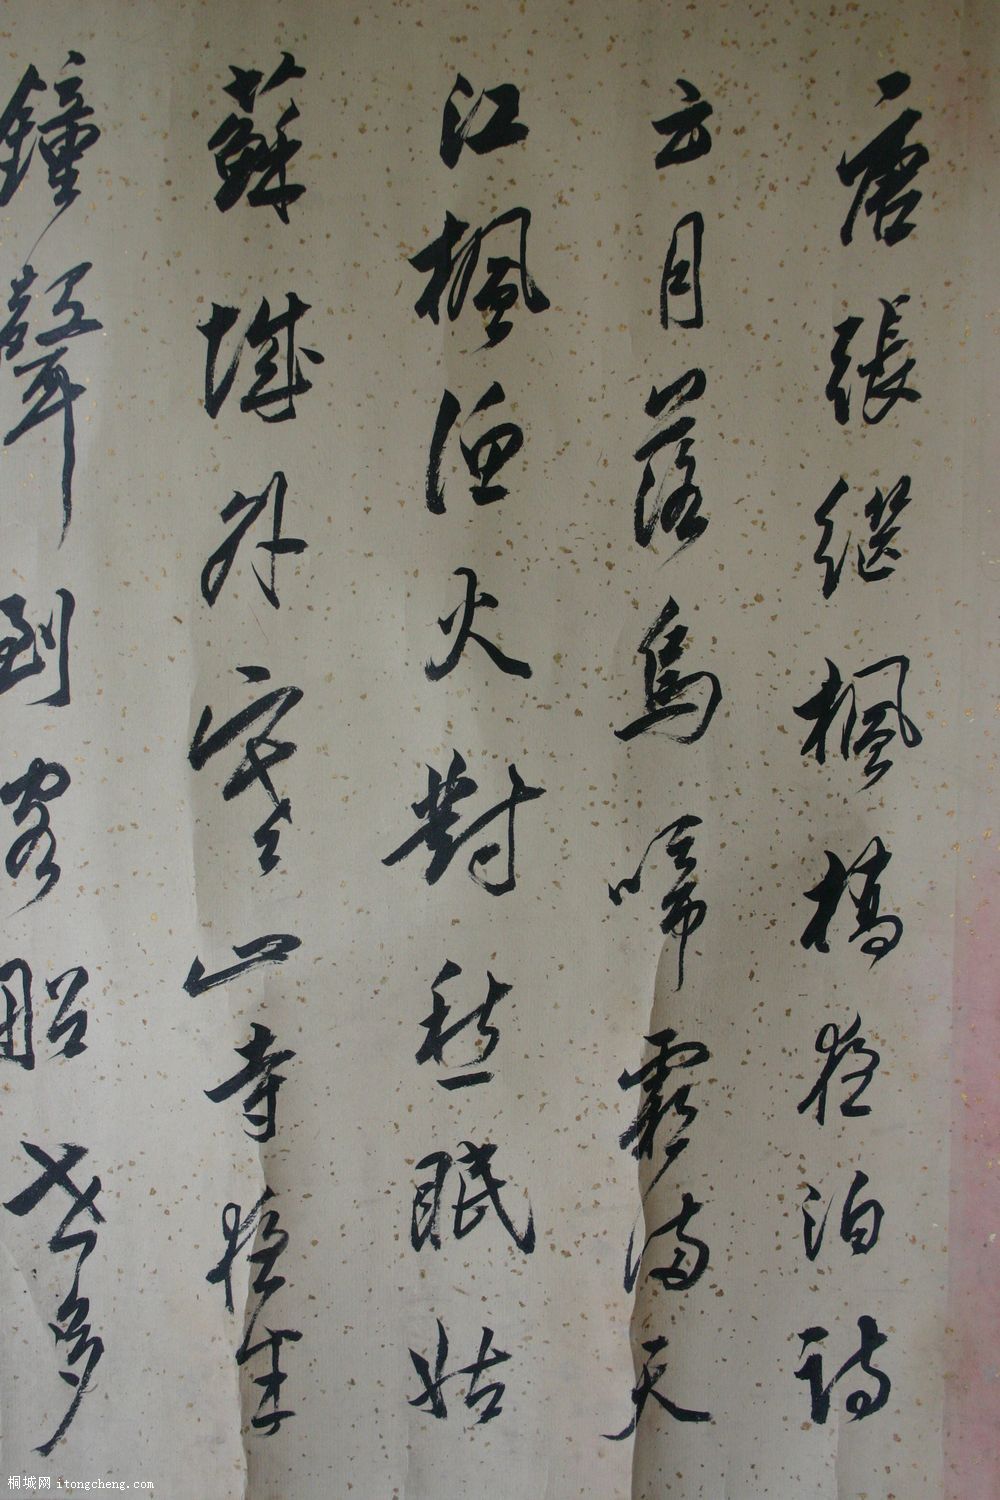 唐張继楓橋夜泊詩
云月落烏啼霜满天
江楓渔火對愁眠姑
蘇城外寒山寺夜半
鐘聲到客船
桐城网 itongcheng.com